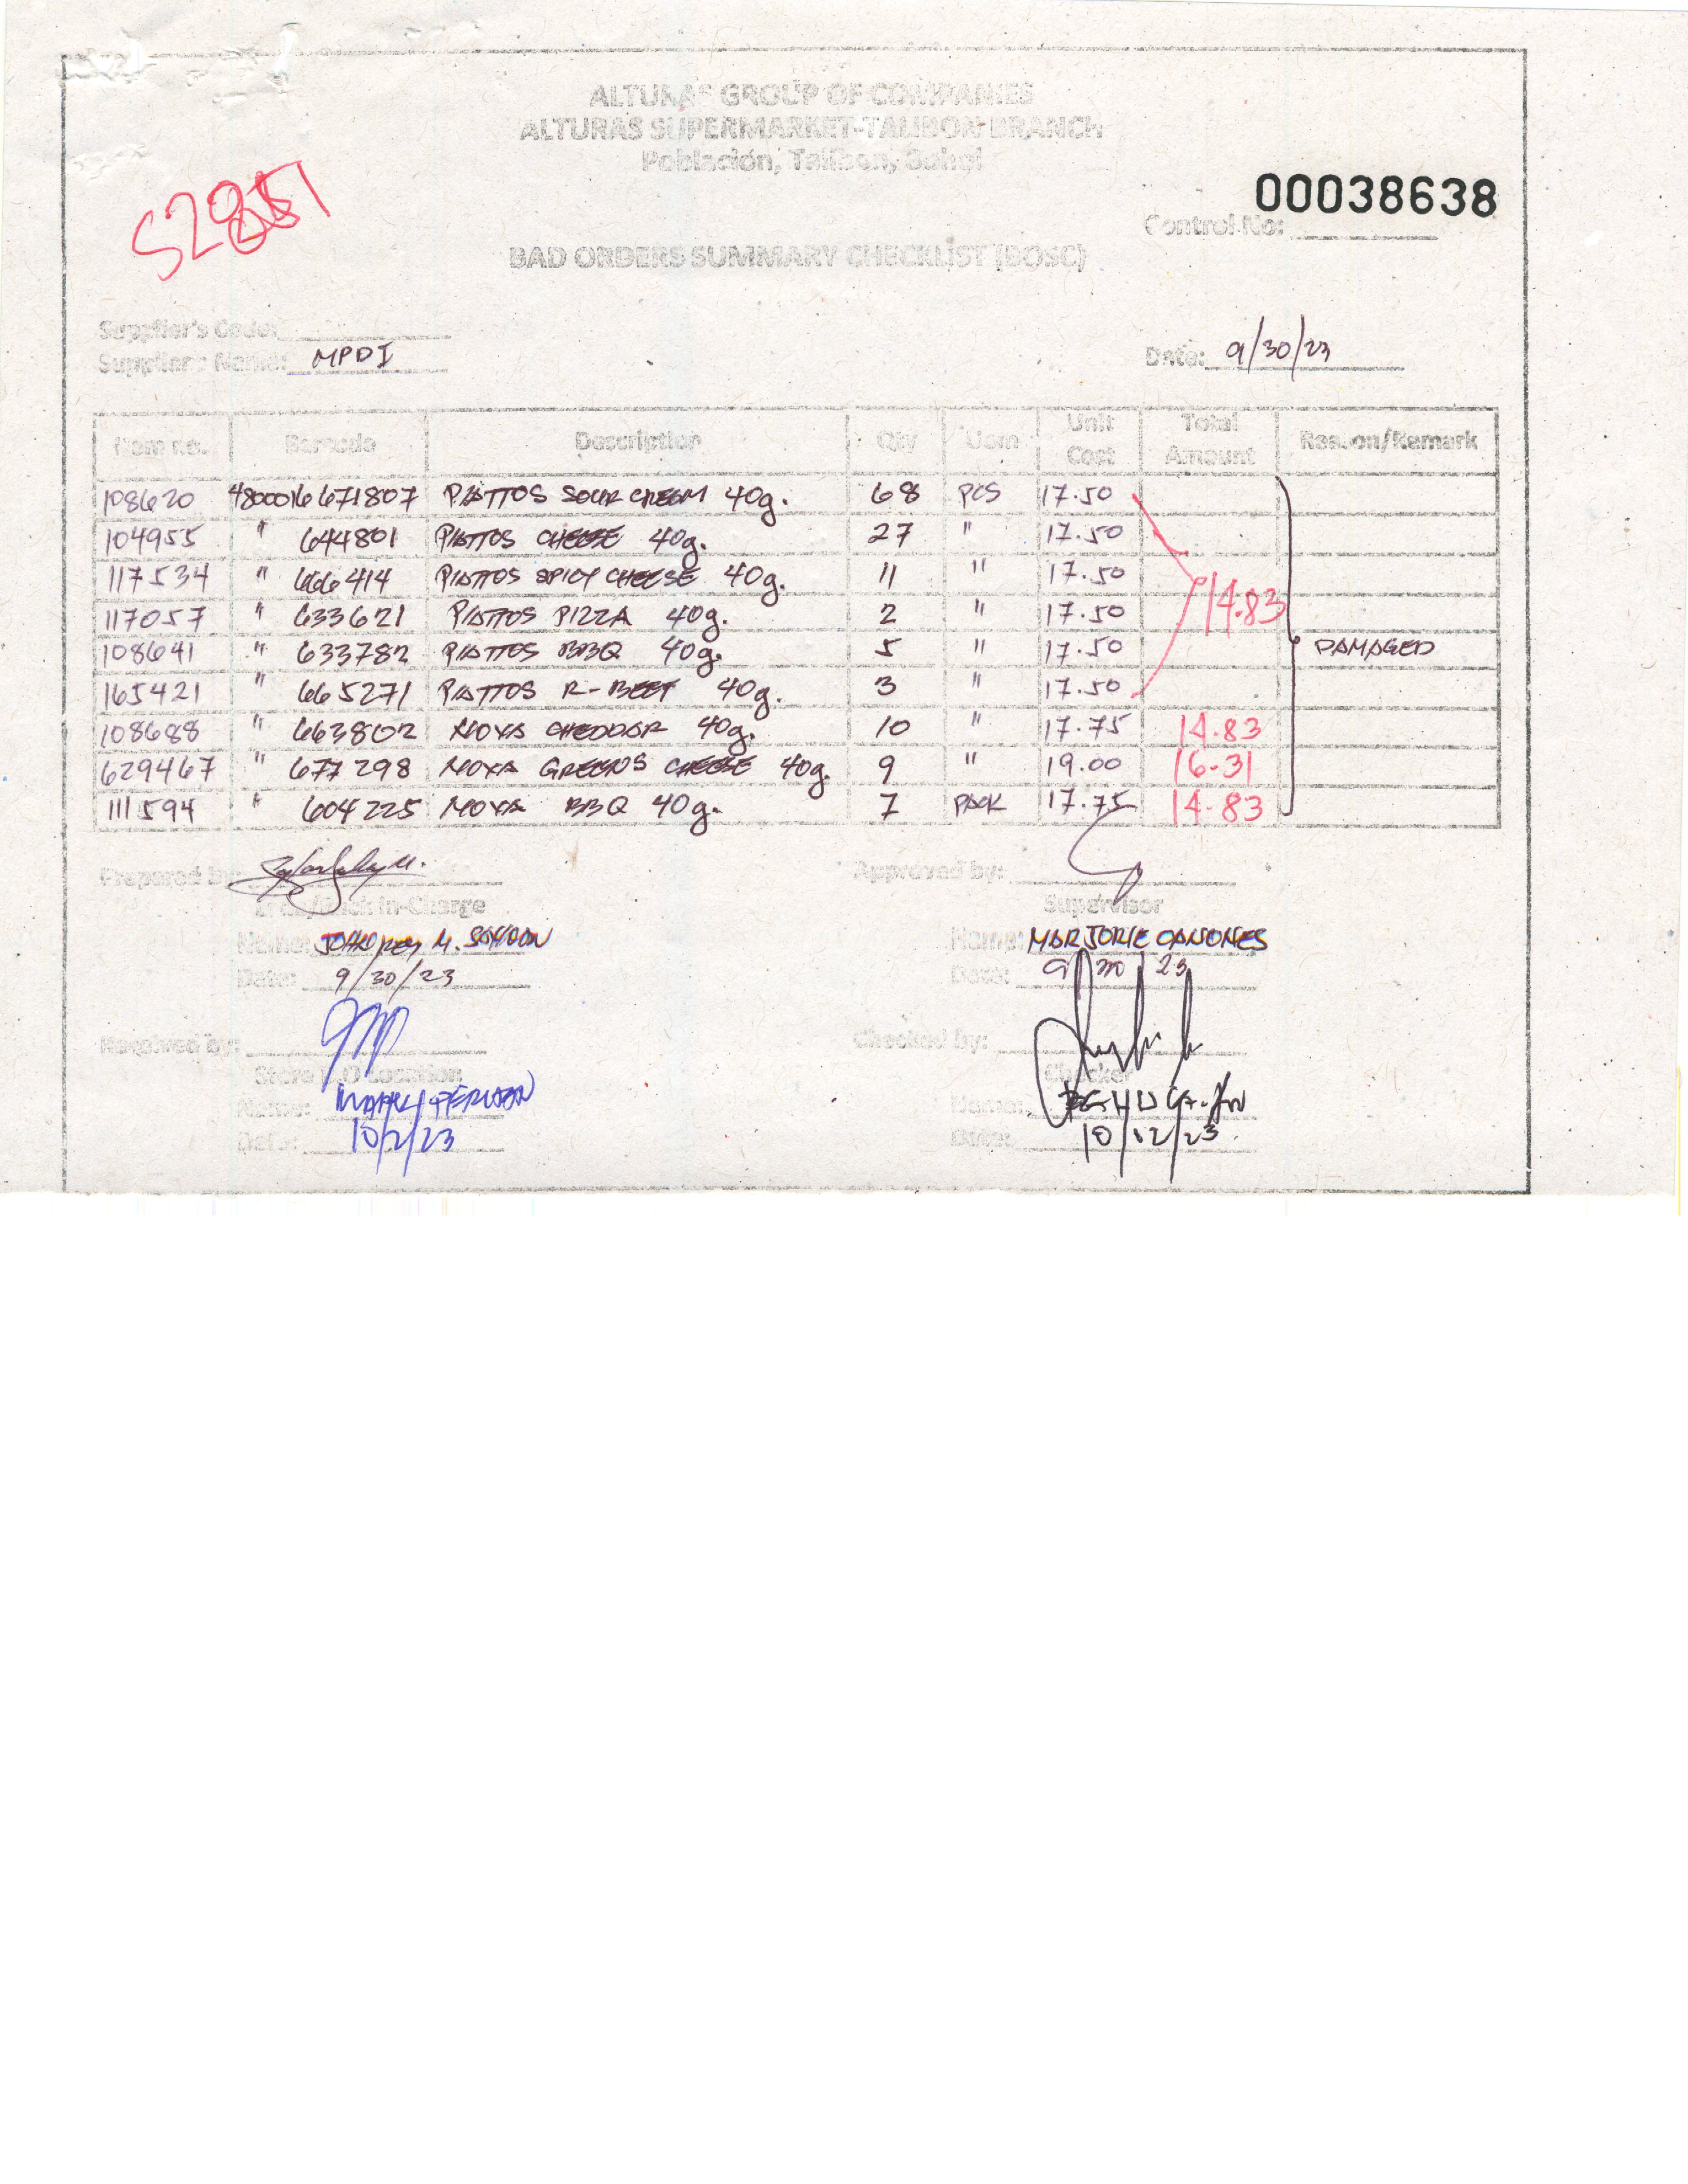 ALTURAS GROUP OF COMPANIES
ALTURAS SUPERMARKET-TALIBON BRANCH
Población, Talibon, Bohol
00038638
Control No:
BAD ORDERS SUMMARY CHECKLIST (BOSC)
Supplier's Code:
Supplier's Name: MPDI
Date: 9/30/23
Item no. Barcode Description Qty Uom Unit Cost Total Amount Reason/Remark
108620 4800016671807 PIATTOS SOUR CREAM 40g. 68 PCS 17.50
104955 " 644801 PIATTOS CHEESE 40g. 27 " 17.50
117534 " 666414 PIATTOS SPICY CHEESE 40g. 11 " 17.50
117057 " 633621 PIATTOS PIZZA 40g. 2 " 17.50 14.83
108641 " 633782 PIATTOS BBQ 40g. 5 " 17.50 DAMAGED
165421 " 665271 PIATTOS R-BEEF 40g. 3 " 17.50
108688 " 663802 NOVA CHEDDAR 40g. 10 " 17.75 14.83
629467 " 677298 NOVA GREENS CHEESE 40g. 9 " 19.00 16.31
111594 " 604225 NOVA BBQ 40g. 7 PACK 17.75 14.83
Prepared by: Approved by:
In-Charge Supervisor
Name: Name: MARJORIE CANONES
Date: 9/30/23 Date: 9/30/23
Received by: Checked by:
Store Location Checker
Name: Name:
Date: 10/2/23 Date: 10/02/23